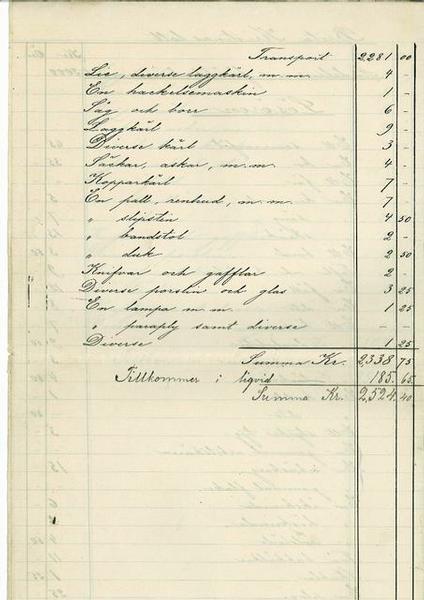 Transport 2281 00
Lie, diverse laggkärl, m.m. 4 -
En hackelsemaskin 1 -
Såg och borr 6 -
Laggkärl 9 -
Diverse kärl 3 -
Säckar, askar, m.m. 4 -
Kopparkärl 7 -
En pall, renhud, m.m. 7 -
" slipstin 4 50
" bandstol 2 -
" duk 2 50
Knifvar och gafflar 2 -
Diverse porslin och glas 3 25
En lampa m.m. 1 25
" paraply samt diverse - -
Diverse 1 25
Summa Kr. 2,338 75
Tillkommer i liqvid 185. 65
Summa Kr. 2,524. 40